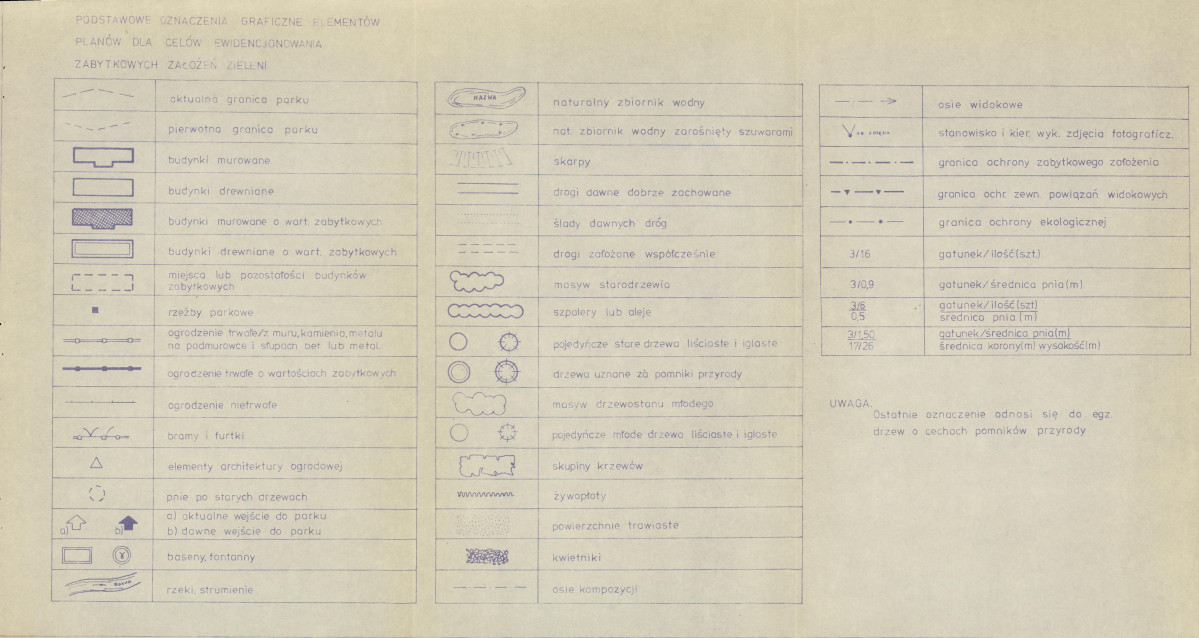 PODSTAWOWE OZNACZENIA GRAFICZNE ELEMENTÓW
PLANÓW DLA CELÓW EWIDENCJONOWANIA
ZABYTKOWYCH ZAŁOŻEŃ ZIELENI
aktualna granica parku
pierwotna granica parku
budynki murowane
budynki drewniane
budynki murowane o wart. zabytkowych
budynki drewniane o wart. zabytkowych
miejsca lub pozostałości budynków
zabytkowych
rzeźby parkowe
ogrodzenie trwałe/z muru, kamienia, metalu
na podmurówce i słupach bet. lub metal.
ogrodzenie trwałe o wartościach zabytkowych
ogrodzenie nietrwałe
bramy i furtki
elementy architektury ogrodowej
pnie po starych drzewach
a) b) a) aktualne wejście do parku
b) dawne wejście do parku
baseny, fontanny
rzeki, strumienie
NAZWA naturalny zbiornik wodny
nat. zbiornik wodny zarośnięty szuwarami
skarpy
drogi dawne dobrze zachowane
ślady dawnych dróg
drogi założone współcześnie
masyw starodrzewia
szpalery lub aleje
pojedyńcze stare drzewa liściaste i iglaste
drzewa uznane za pomniki przyrody
masyw drzewostanu młodego
pojedyńcze młode drzewa liściaste i iglaste
skupiny krzewów
żywopłoty
powierzchnie trawiaste
kwietniki
osie kompozycji
osie widokowe
stanowisko i kier. wyk. zdjęcia fotograficz.
granica ochrony zabytkowego założenia
granica ochr. zewn. powiązań widokowych
granica ochrony ekologicznej
3/16 gatunek/ilość(szt.)
3/0,9 gatunek/średnica pnia(m)
3/6 gatunek/ilość(szt)
0,5 średnica pnia (m)
3/1,50 gatunek/średnica pnia(m)
17/26 średnica korony(m) wysokość(m)
UWAGA:
Ostatnie oznaczenie odnosi się do egz.
drzew o cechach pomników przyrody